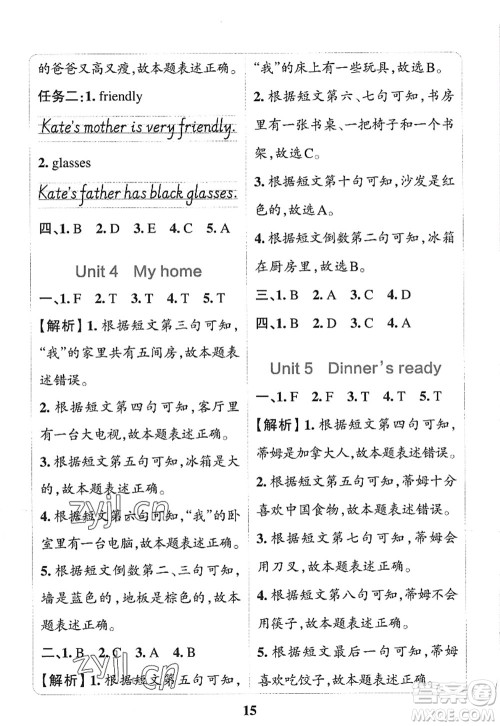 的爸爸又高又瘦,故本题表述正确。
任务二:1. friendly
Kate's mother is very friendly.
2. glasses
Kate's father has black glasses.
四、1. B 2. D 3. E 4. C 5. A
Unit 4 My home
一、1. F 2. T 3. T 4. T 5. T
【解析】1. 根据短文第三句可知,
“我”的家里共有五间房,故本题表
述错误。
2. 根据短文第四句可知,客厅里
有一台大电视,故本题表述正确。
3. 根据短文第五句可知,冰箱是大
的,故本题表述正确。
4. 根据短文第六句可知,“我”的卧
室里有一台电脑,故本题表述正确。
5. 根据短文倒数第二、三句可知,
墙是蓝色的,地板是棕色的,故本
题表述正确。
二、1. B 2. C 3. B 4. A 5. C
【解析】1. 根据短文第五句可知,
“我”的床上有一些玩具,故选B。
2. 根据短文第六、七句可知,书房
里有一张书桌、一把椅子和一个书
架,故选C。
3. 根据短文第十句可知,沙发是红
色的,故选B。
4. 根据短文第十句可知,沙发是红
色的,故选A。
5. 根据短文倒数第二句可知,冰箱
在厨房里,故选B。
三、1. B 2. A 3. C 4. D
四、1. B 2. C 3. A
Unit 5 Dinner's ready
一、1. F 2. T 3. T 4. F 5. T
【解析】1. 根据短文第二句可知,
蒂姆是加拿大人,故本题表述错误。
2. 根据短文第五句可知,蒂姆十分
喜欢中国食物,故本题表述正确。
3. 根据短文第七句可知,蒂姆会使
用刀叉,故本题表述正确。
4. 根据短文第八句可知,蒂姆不会
用筷子,故本题表述错误。
5. 根据短文最后一句可知,蒂姆喜
欢吃饺子,故本题表述正确。
15
zyjl.cn
zyjl.cn
MXQE.COM